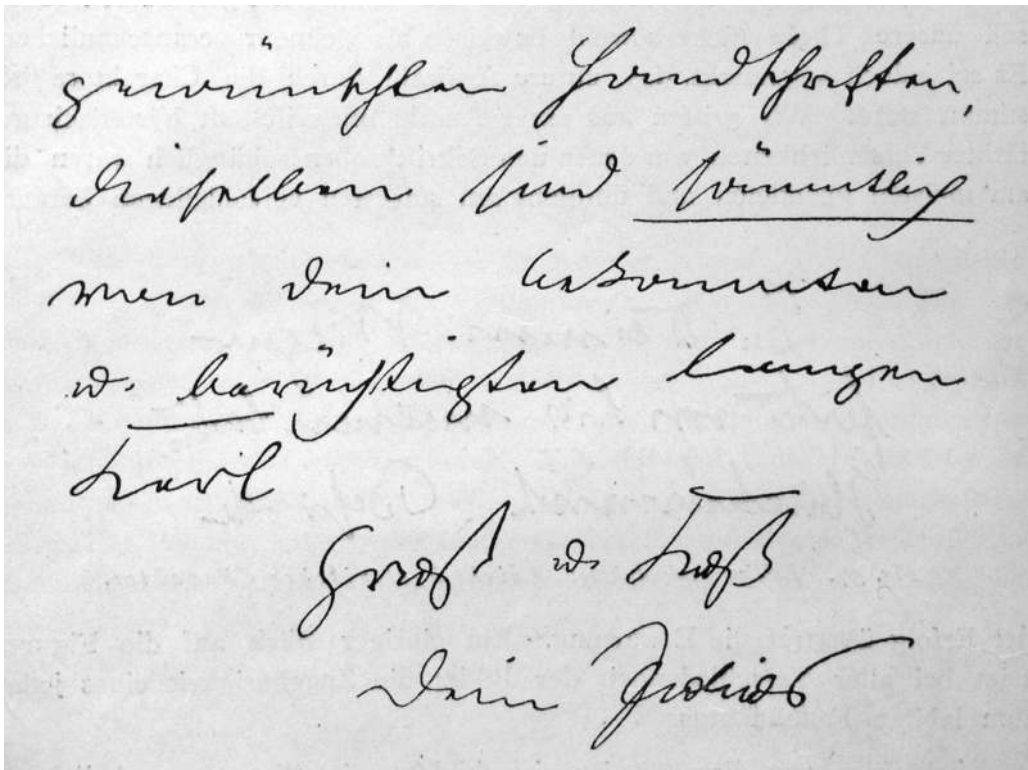 gewünschten Handschriften,
dieselben sind sämmtlich
von dem bekannten
u. berüchtigten langen
Karl
Gruß u. Kuß
Dein Julius